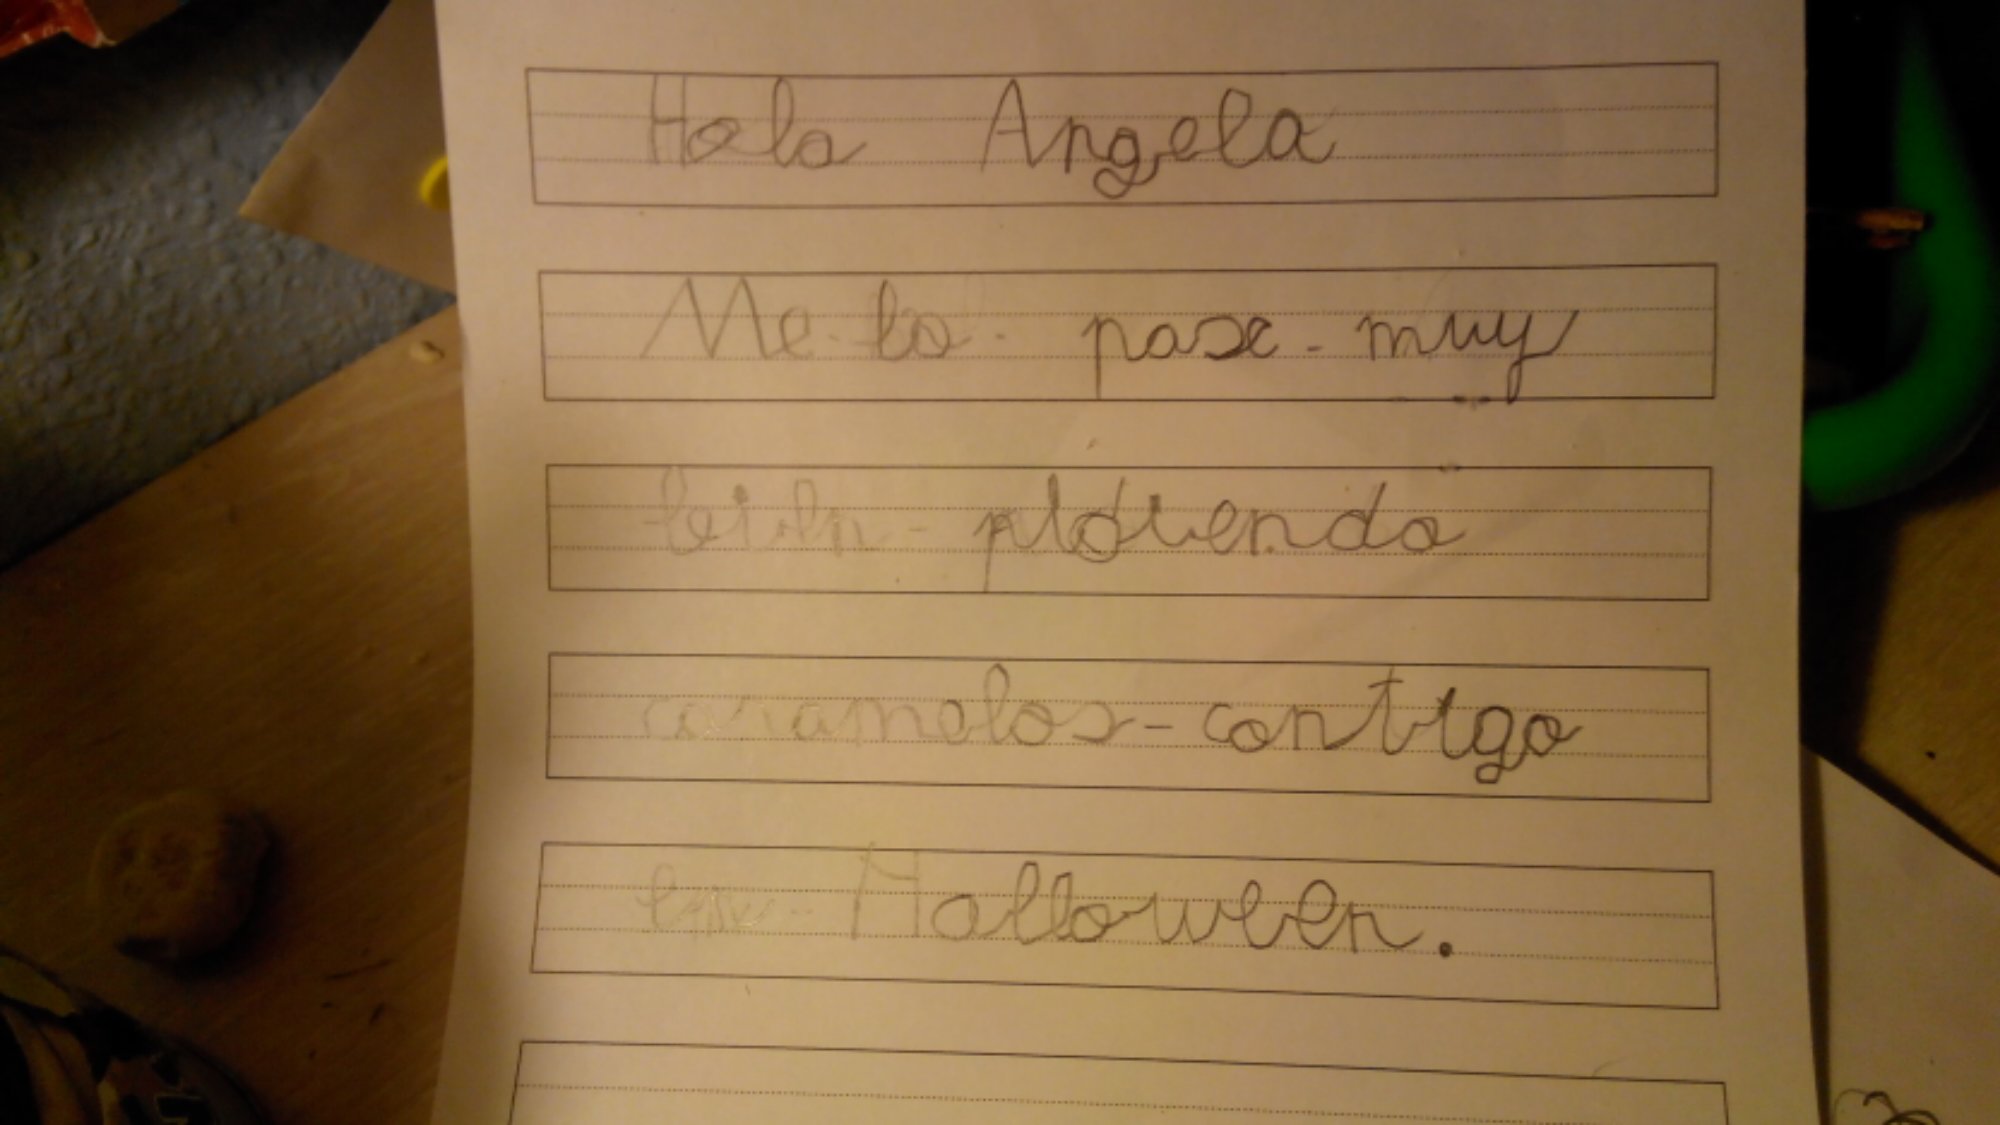 Hola Angela
Me-lo-pase-muy
bien-pidiendo
caramelos-contigo
en-Halloween.